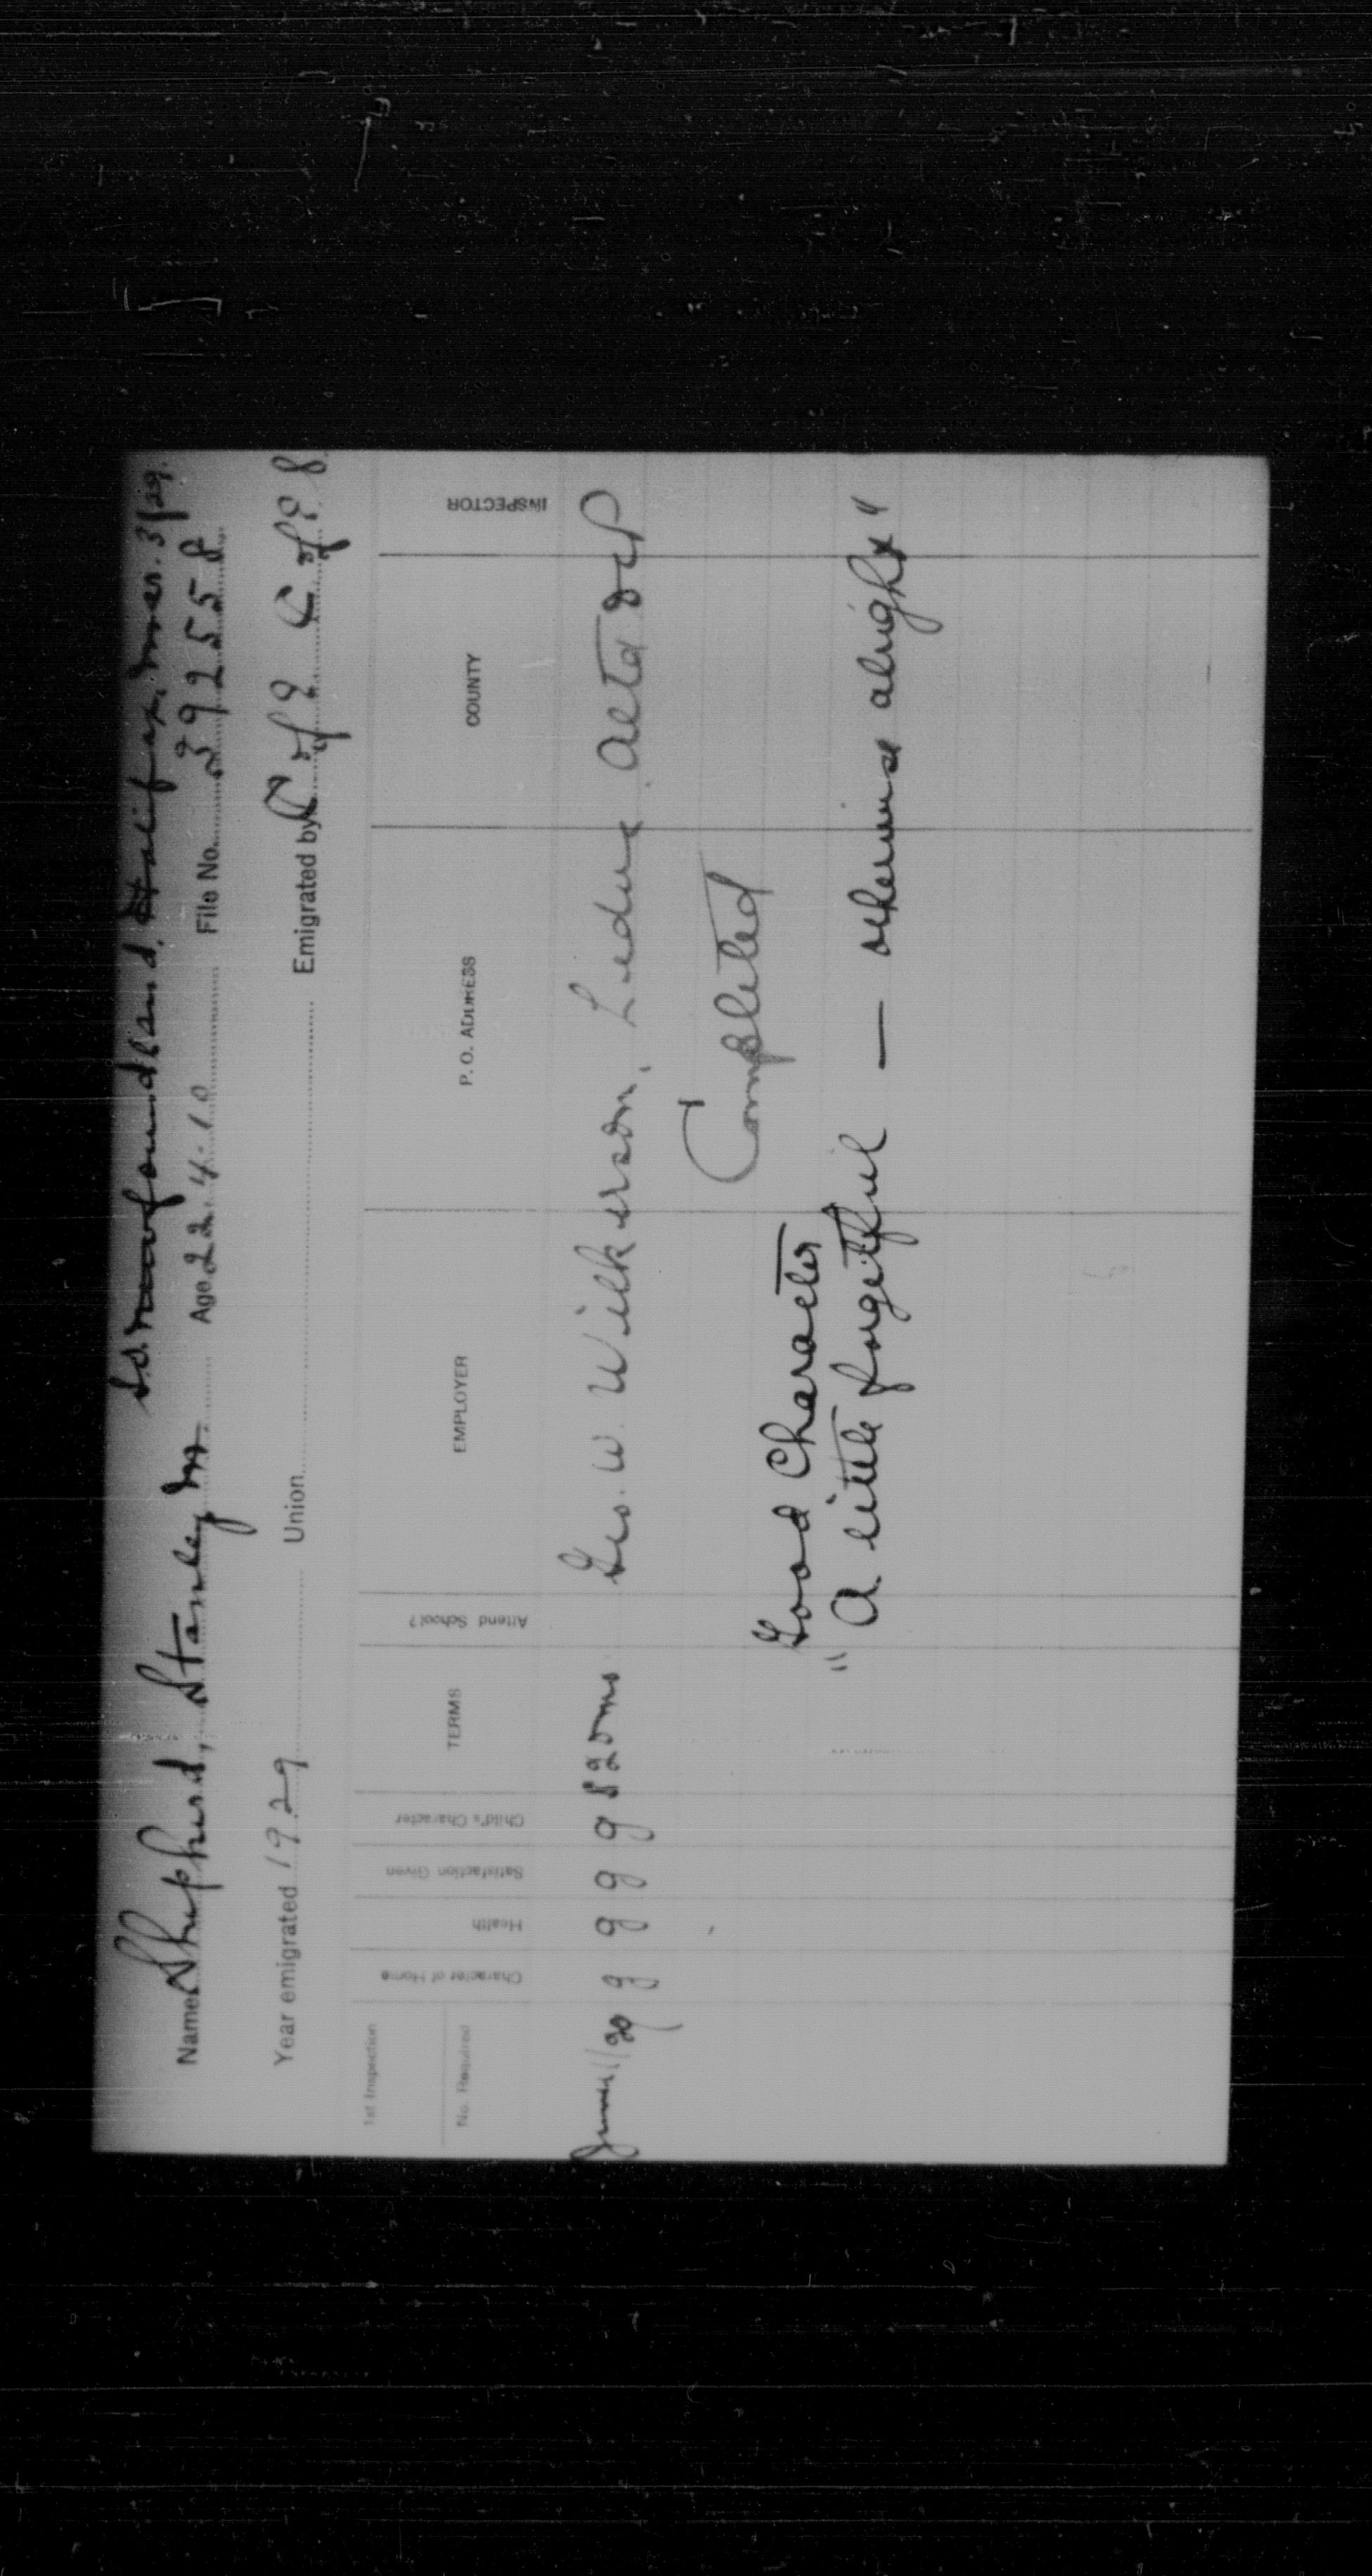 S.S. Newfoundland, Halifax, Mar. 3/29.
Name Shepherd, Stanley M. Age 22.4.10 File No. 392558
Year emigrated 1929 Union Emigrated by C of E C of E
1st Inspection
No. Required Character of Home Health Satisfaction Given Child's Character TERMS Attend School? EMPLOYER P. O. ADDRESS COUNTY INSPECTOR
June 1/29 g g g g $20mo Geo. W. Wilkerson, Leduc Alta
Completed
Good Character
"A little forgetful — otherwise alright"